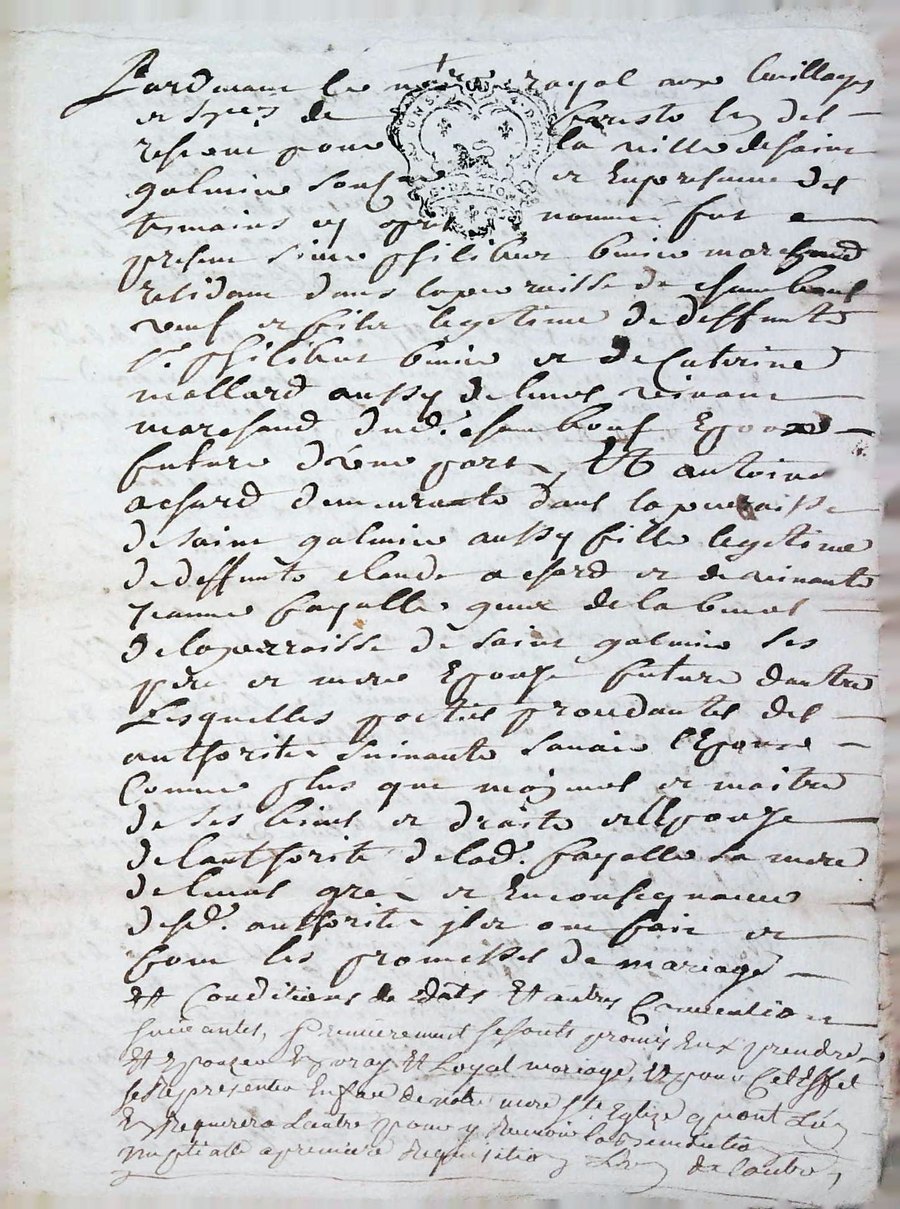 Pardevant le no.re royal aux bailliages
et
reservé pour la ville de saint
galmier sous et En presence des
temoins en nommés fut
present sieur philibert marchand
residant dans la parroisse de chambeuf
veuf et fils legitime de deffunt
S.r philibert et de Caterine
mallard aussy de leurs vivant
marchand dud. chambeuf Epoux
futur d'une part, Et antoine
achard demeurante dans la parroisse
de saint galmier aussy fille legitime
de deffunt claude achard et de vivante
jeanne fayolle, de la
de la parroisse de saint galmier ses
père et mere Epouse future d'autre
Lesquelles parties proceddantes des
authorités suivantes savoir l'Epoux
Comme plus que majeur et maitre
de ses biens et droits et l'Epouse
de l'authorité de lad. fayolle sa mere
de leurs grés et En consequance
desd. authorités ont fait et
font les promesses de mariage
Et Conditions de dots Et autres Conventions
suivantes, Premierement se sont promis Eux prendre
Et Epouzer En vray Et Loyal mariage, Et pour Cet Effet
se Representer En face de notre mere s.te Eglize quant L'un
En Requerera L'autre pour y Recevoir la Benediction
nuptialle a premiere Requisition L'un de l'autre,